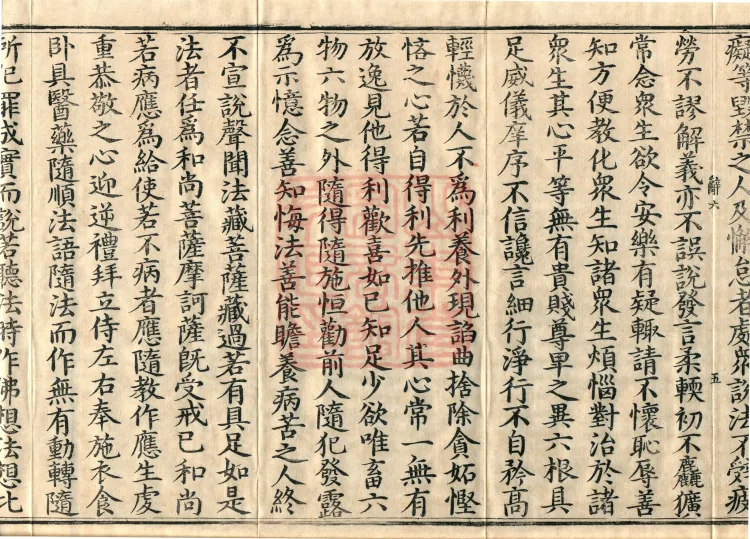 癡等毀禁之人及懈怠者處衆說法不受疲
勞不謬解義亦不誤說發言柔輭初不麤獷
辭六
五
常念衆生欲令安樂有疑輙請不懷恥辱善
知方便教化衆生知諸衆生煩惱對治於諸
衆生其心平等無有貴賤尊卑之異六根具
足威儀庠序不信讒言細行淨行不自矜高
輕懱於人不爲利養外現諂曲捨除貪妬慳
悋之心若自得利先推他人其心常一無有
放逸見他得利歡喜如已知足少欲唯畜六
物六物之外隨得隨施恒勸前人隨犯發露
爲示憶念善知悔法善能瞻養病苦之人終
不宣說聲聞法藏菩薩藏過若有具足如是
法者任爲和尚菩薩摩訶薩旣受戒已和尚
若病應爲給使若不病者應隨教作應生䖍
重恭敬之心迎逆禮拜立侍左右奉施衣食
卧具醫藥隨順法語隨法而作無有動轉隨
所犯罪成實而說若聽法時作佛想法想比